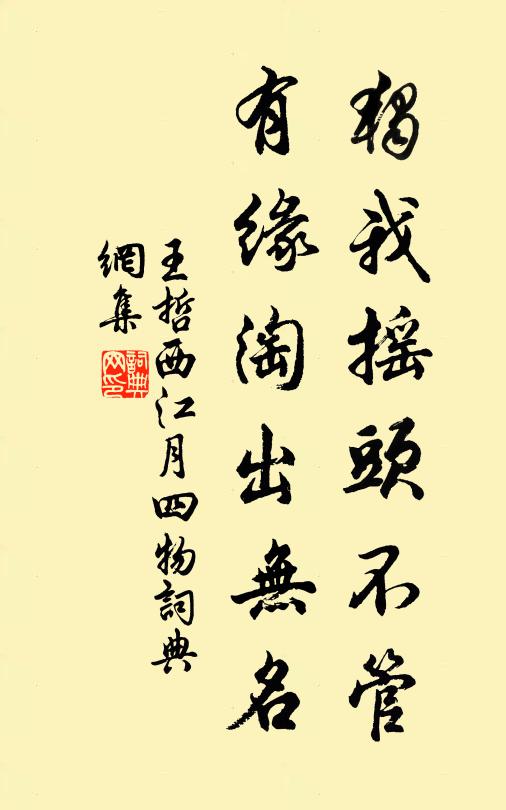 獨我摇頭不管
有緣淘出無名
王哲西江月四物詞典
網集
詞典
网印